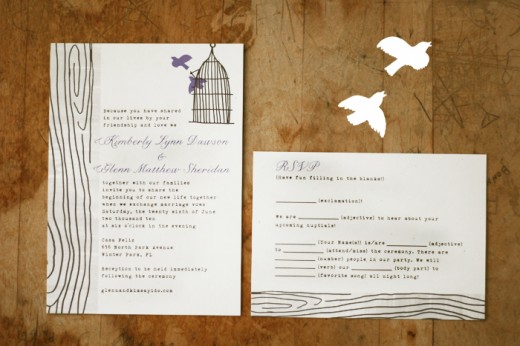 Because you have shared
in our lives by your
friendship and love we
Kimberly Lynn Dawson
&
Glenn Matthew Sheridan
together with our families
invite you to share the
beginning of our new life together
when we exchange marriage vows
Saturday, the twenty sixth of June
two thousand ten
at six o'clock in the evening
Casa Feliz
656 North Park Avenue
Winter Park, FL
Reception to be held immediately
following the ceremony
RSVP
(Have fun filling in the blanks!)
(exclamation!)
We are (adjective) to hear about your
upcoming nuptials!
(Your Name(s)) is/are (adjective)
to (attend/miss) the ceremony. There are
(number) people in our party. We will
(verb) our (body part) to
(favorite song) all night long!